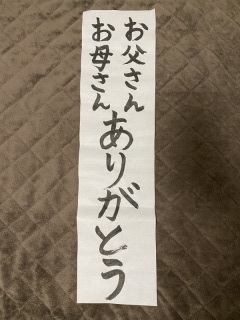 お父さん
お母さん
ありがとう